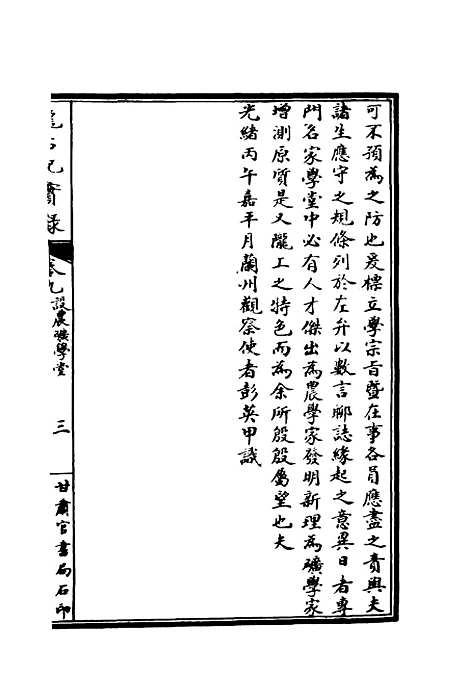 可不預為之防也爰標立學宗旨暨在事各員應盡之責與夫
諸生應守之規條列於左弁以數言聊誌緣起之意異日者專
門名家學堂中必有人才傑出為農學家發明新理為礦學家
增測原質是又隴工之特色而為余所殷殷屬望也夫
光緒丙午嘉平月蘭州觀察使者彭英甲識
卷九 設農礦學堂 三 甘肅官書局石印